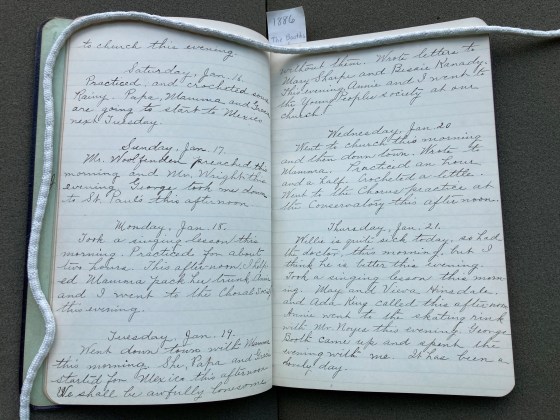 1886
The Booths
to church this evening.
Saturday, Jan. 16.
Practiced and crocheted some.
Rainy. Papa, Mamma and Grace
are going to start to Mexico
next Tuesday.
Sunday, Jan. 17.
Mr. Woolfenden preached this
morning and Mr. Wright this
evening. George took me down
to St. Pauls this afternoon.
Monday, Jan. 18.
Took a singing lesson this
morning. Practiced for about
two hours. This afternoon, I help-
ed Mamma pack her trunk
and I went to the Choral Society
this evening.
Tuesday, Jan. 19.
Went down town with Mamma
this morning. She, Papa and Grace
started for Mexico this afternoon.
We shall be awfully lonesome
without them. Wrote letters to
Mary Sharpe and Bessie Kanady.
This evening Annie and I went to
the Young Peoples society at our
church.
Wednesday, Jan. 20.
Went to church this morning
and then down town. Wrote to
Mamma. Practiced an hour
and a half. Crocheted a little.
Went to the Chorus practice at
the Conservatory this afternoon.
Thursday, Jan. 21.
Willie is quite sick today, so had
the doctor, this morning, but I
think he is better this evening.
Took a singing lesson this morn-
ing. May and Hinsdale
and Ada King called this afternoon.
Annie went to the skating rink
with Mr. Noyes this evening. George
Booth came up and spent the
evening with me. It has been a
lovely day.